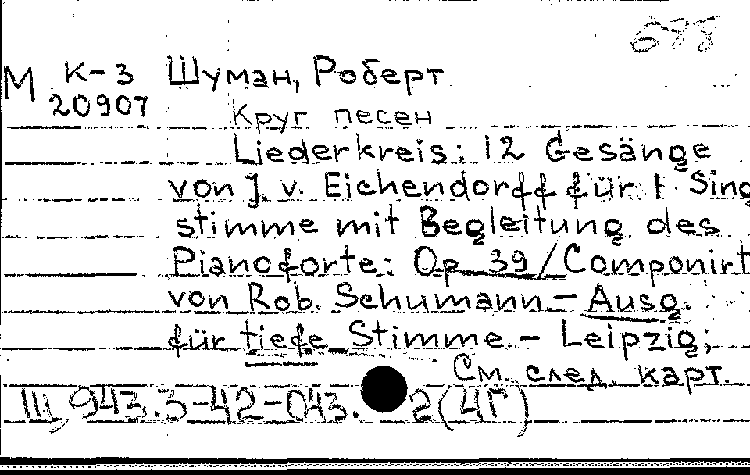 688
М К-3 Шуман, Роберт
20907
Круг песен
Liederkreis: 12 Gesänge
von J. v. Eichendorff für 1 Sing
stimme mit Begleitung des
Pianoforte: Op. 39/Componirt
von Rob. Schumann – Ausg.
für tiefe Stimme – Leipzig;
См. след. карт.
Ш 943.3-42-043. 2(4Г)